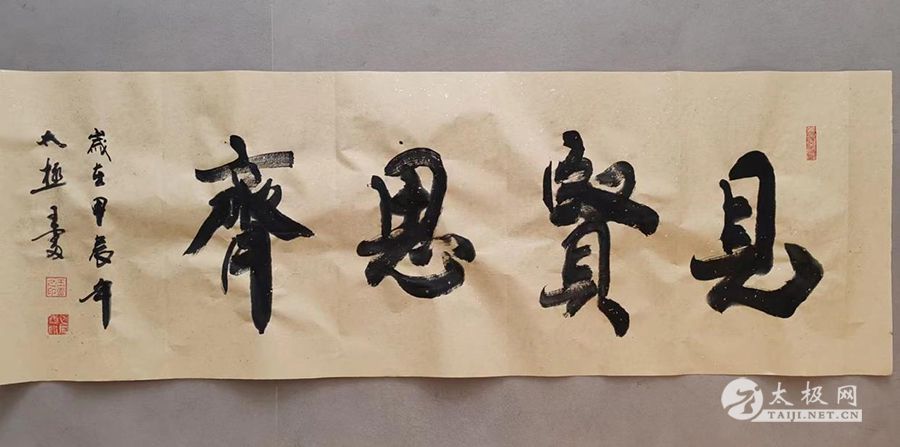 見賢思齊
歲在甲辰年
太極王
太极网
TAIJI.NET.CN